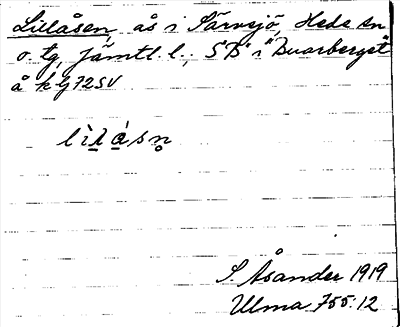 Lillåsen, ås i Särvsjö, Hede sn
o. tg, Jämtl. l., S"B" i "Buarberget"
å kbl 72SV
lìlåsn̥
S. Åsander 1919
Ulma 755:12